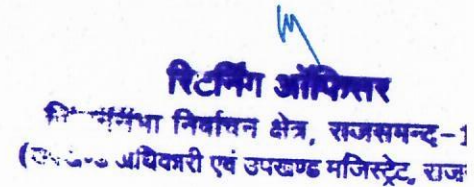 रिटर्निंग ऑफिसर
निर्वाचन क्षेत्र, राजसमन्द-1
अधिकारी एवं उपखण्ड मजिस्ट्रेट, राज